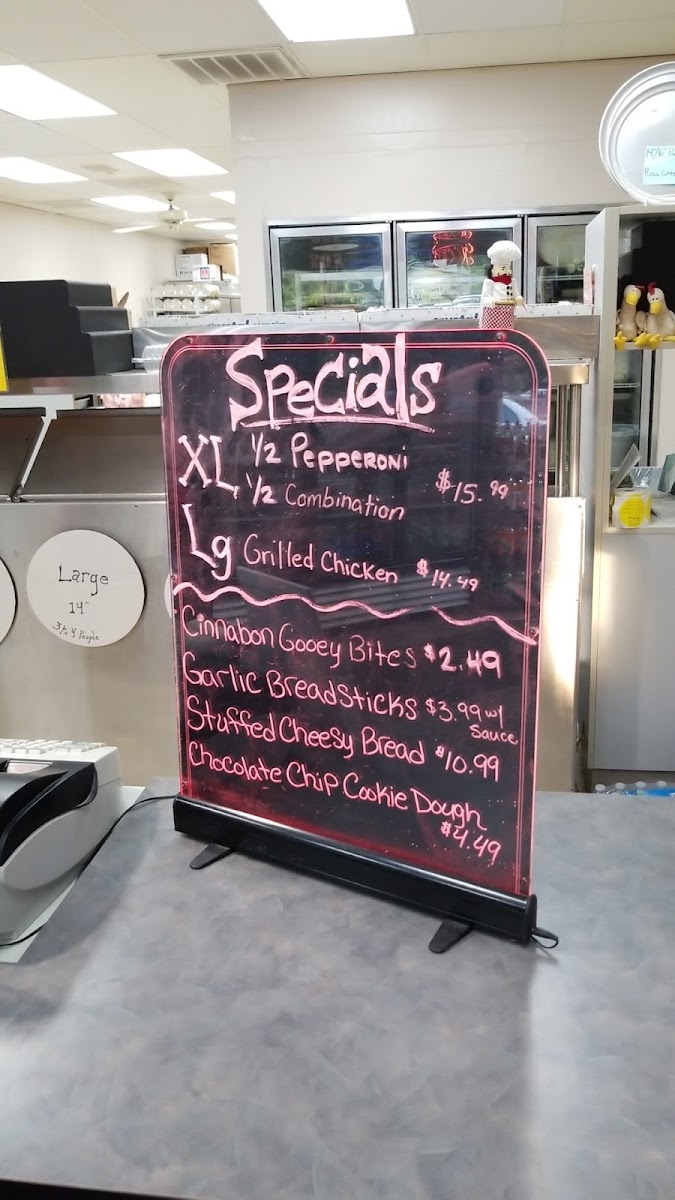 Specials
XL 1/2 Pepperoni
1/2 Combination $15.99
Lg Grilled Chicken $14.49
Cinnabon Gooey Bites $2.49
Garlic Breadsticks $3.99 w/
Sauce
Stuffed Cheesy Bread $10.99
Chocolate Chip Cookie Dough
$4.49
Large
14"
3 to 4 People